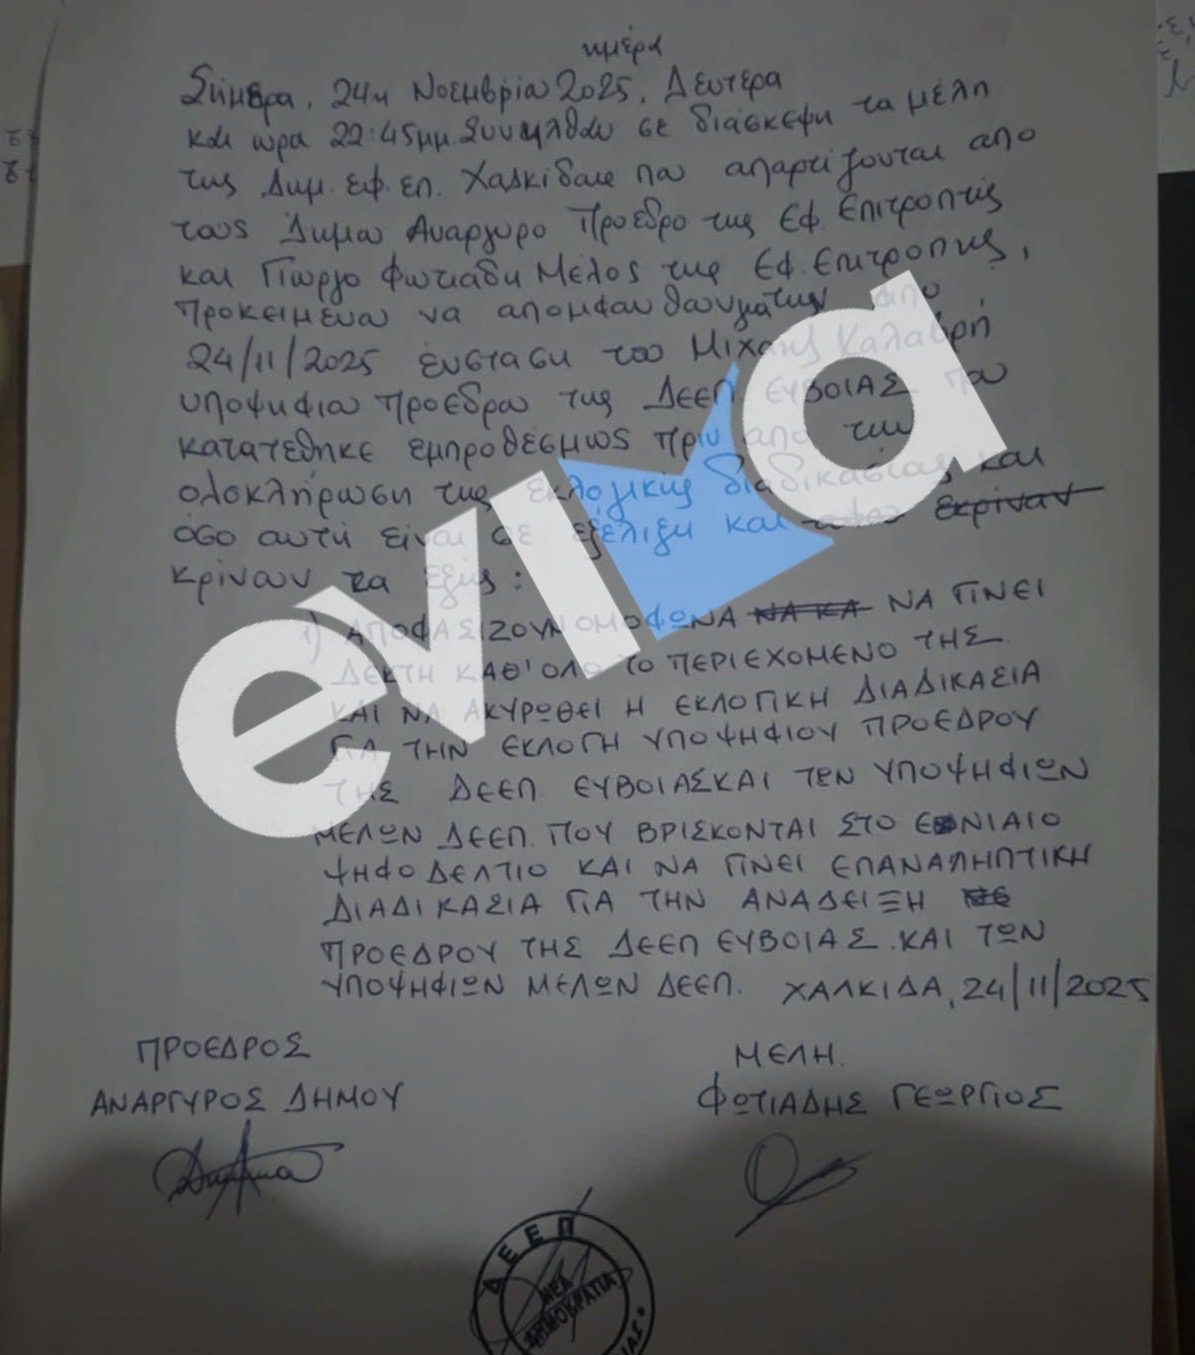 ημέρα
Σήμερα, 24η Νοεμβρίου 2025, Δευτέρα
και ώρα 22:45μμ. Συνήλθαν σε διάσκεψη τα μέλη
της Δημ. εφ. επ. Χαλκίδας που απαρτίζονται από
τους Δήμου Ανάργυρο Πρόεδρο της Εφ. Επιτροπής
και Γιώργο Φωτιάδη Μέλος της Εφ. Επιτροπής,
προκειμένου να αποφανθούν για την από
24/11/2025 ένσταση του Μιχάλη Καλαβρή
υποψηφίου προέδρου της ΔΕΕΠ ΕΥΒΟΙΑΣ που
κατατέθηκε εμπροθέσμως πριν από την
ολοκλήρωση της εκλογικής διαδικασίας και
όσο αυτή είναι σε εξέλιξη και έκριναν
κρίνουν τα εξής:
1) ΑΠΟΦΑΣΙΖΟΥΝ ΟΜΟΦΩΝΑ ΝΑ ΚΑ ΝΑ ΓΙΝΕΙ
ΔΕΚΤΗ ΚΑΘ' ΟΛΟ ΤΟ ΠΕΡΙΕΧΟΜΕΝΟ ΤΗΣ
ΚΑΙ ΝΑ ΑΚΥΡΩΘΕΙ Η ΕΚΛΟΓΙΚΗ ΔΙΑΔΙΚΑΣΙΑ
ΓΙΑ ΤΗΝ ΕΚΛΟΓΗ ΥΠΟΨΗΦΙΟΥ ΠΡΟΕΔΡΟΥ
ΤΗΣ ΔΕΕΠ ΕΥΒΟΙΑΣ ΚΑΙ ΤΩΝ ΥΠΟΨΗΦΙΩΝ
ΜΕΛΩΝ ΔΕΕΠ ΠΟΥ ΒΡΙΣΚΟΝΤΑΙ ΣΤΟ ΕΝΙΑΙΟ
ΨΗΦΟΔΕΛΤΙΟ ΚΑΙ ΝΑ ΓΙΝΕΙ ΕΠΑΝΑΛΗΠΤΙΚΗ
ΔΙΑΔΙΚΑΣΙΑ ΓΙΑ ΤΗΝ ΑΝΑΔΕΙΞΗ
ΠΡΟΕΔΡΟΥ ΤΗΣ ΔΕΕΠ ΕΥΒΟΙΑΣ. ΚΑΙ ΤΩΝ
ΥΠΟΨΗΦΙΩΝ ΜΕΛΩΝ ΔΕΕΠ. ΧΑΛΚΙΔΑ, 24/11/2025
ΠΡΟΕΔΡΟΣ
ΜΕΛΗ.
ΑΝΑΡΓΥΡΟΣ ΔΗΜΟΥ
ΦΩΤΙΑΔΗΣ ΓΕΩΡΓΙΟΣ
ΔΕΕΠ
ΝΕΑ
ΔΗΜΟΚΡΑΤΙΑ
evia